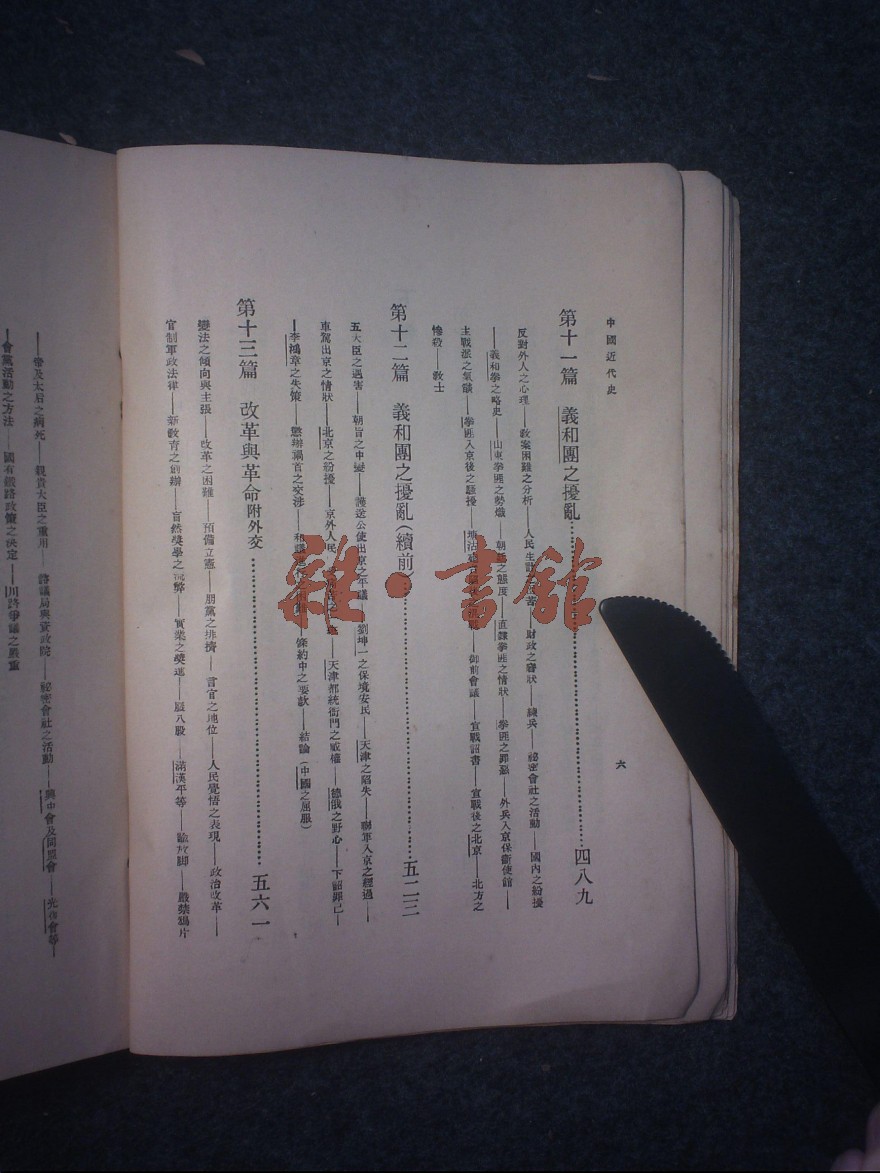 中國近代史
第十一篇 義和團之擾亂……四八九
反對外人之心理——教案困難之分析——人民生計之困苦——財政之窘狀——練兵——祕密會社之活動——國內之紛擾
——義和拳之略史——山東拳匪之勢熾——朝廷之態度——直隸拳匪之情狀——拳匪之罪惡——外兵入京保衞使館——
主戰派之氣燄——拳匪入京後之騷擾——御前會議——宣戰詔書——宣戰後之北京——北方之
慘殺——教士
第十二篇 義和團之擾亂(續前)……五二三
五大臣之遇害——朝旨之中變——護送公使出京之爭議——劉坤一之保境安民——天津之陷失——聯軍入京之經過——
車駕出京之情狀——北京之紛擾——京外人民——天津都統衙門之威權——德俄之野心——下詔罪己——
——李鴻章之失策——懲辦禍首之交涉——條約中之要款——結論(中國之屈服)
第十三篇 改革與革命附外交……五六一
變法之傾向與主張——改革之困難——預備立憲——朋黨之排擠——言官之地位——人民覺悟之表現——政治改革——
官制軍政法律——新教育之創辦——盲然獎學之流弊——實業之獎進——廢八股——滿漢平等——除放脚——嚴禁鴉片
六
——帝及太后之病死——親貴大臣之重用——諮議局與資政院——祕密會社之活動——興中會及同盟會——光復會等——
——會黨活動之方法——國有鐵路政策之決定——川路爭議之嚴重
雜·書館